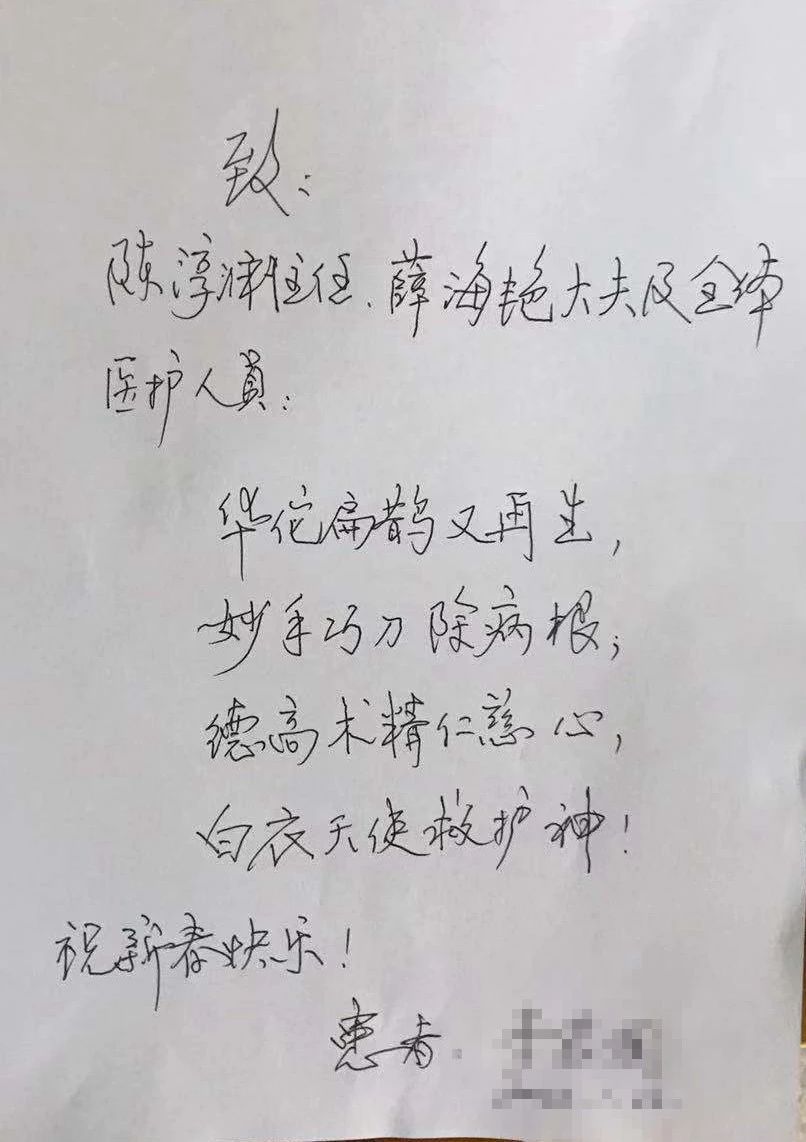 致：
陈淳主任、薛海艳大夫及全体
医护人員：
华佗扁鹊又再生，
妙手巧刀除病根；
德高术精仁慈心，
白衣天使救护神！
祝新春快乐！
患者